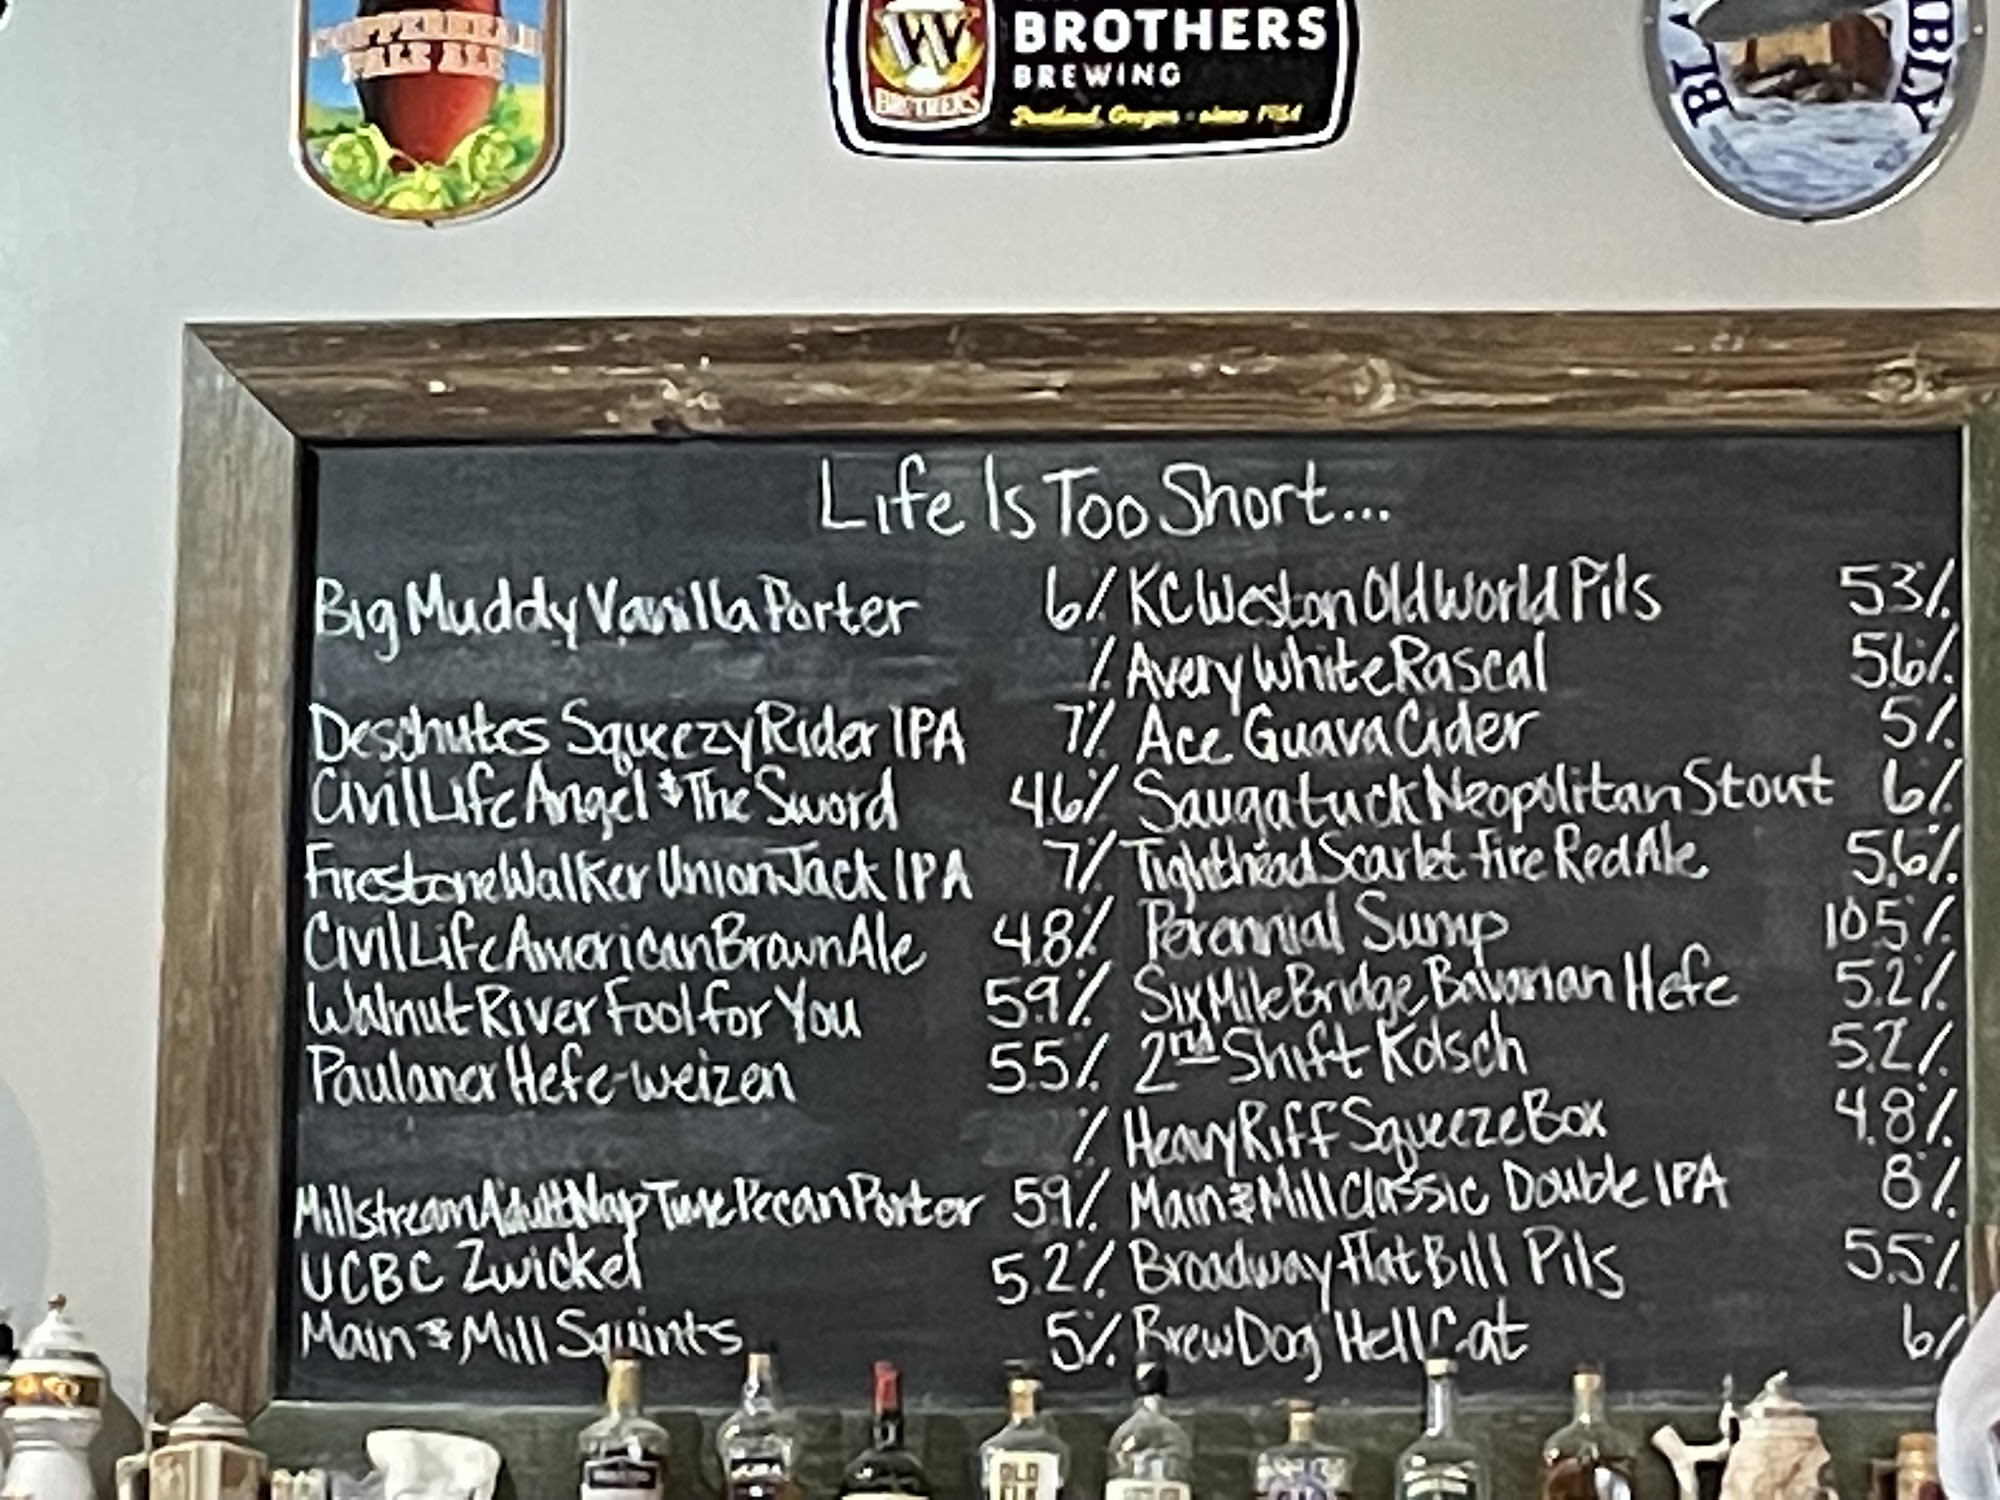 PALE ALE
W
BROTHERS
BROTHERS
BREWING
Portland, Oregon - since 1984
Life Is Too Short...
Big Muddy Vanilla Porter 6%
%
Deschutes Squeezy Rider IPA 7%
Civil Life Angel & The Sword 4.6%
Firestone Walker Union Jack IPA 7%
Civil Life American Brown Ale 4.8%
Walnut River Fool for You 5.9%
Paulaner Hefe-weizen 5.5%
%
Millstream Adult Nap Time Pecan Porter 5.9%
UCBC Zwickel 5.2%
Main & Mill Squints 5%
KC Weston Old World Pils 5.3%
Avery White Rascal 5.6%
Ace Guava Cider 5%
Saugatuck Neopolitan Stout 6%
Tighthead Scarlet Fire Red Ale 5.6%
Perennial Sump 10.5%
Six Mile Bridge Bavarian Hefe 5.2%
2nd Shift Kolsch 5.2%
Heavy Riff Squeeze Box 4.8%
Main & Mill Classic Double IPA 8%
Broadway Flat Bill Pils 5.5%
BrewDog Hell Cat 6%
OLD